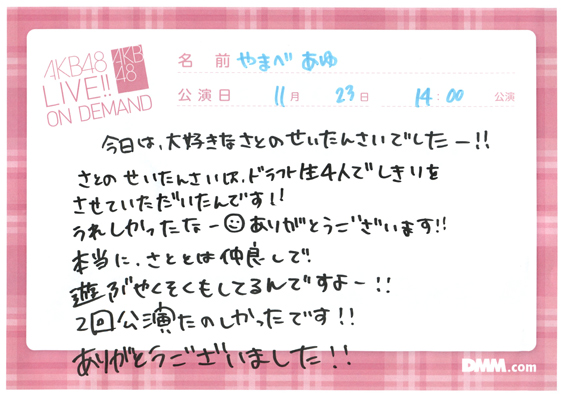 AKB48
LIVE!!
ON DEMAND
AKB
48
名 前 やまべ あゆ
公演日 11月 23日 14:00 公演
今日は、大好きなさとのせいたんさいでしたー!!
さとのせいたんさいは、ドラフト生4人でしきりを
させていただいたんです!!
うれしかったなー☺ありがとうございます!!
本当に、さととは仲良しで
遊ぶやくそくもしてるんですよー!!
2回公演たのしかったです!!
ありがとうございました!!
DMM.com